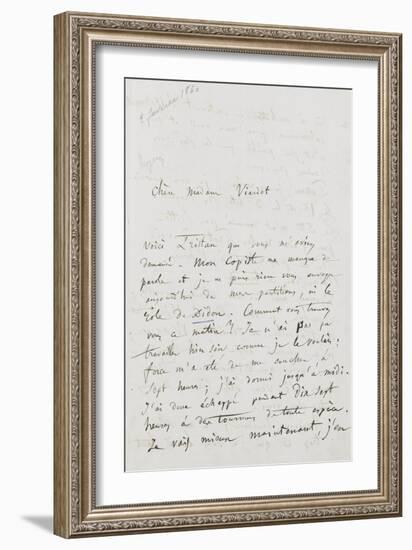 février 1860
Chère Madame Viardot
Voici Tristan que vous m'aviez
demandé. Mon Copiste me manque de
parole et je ne puis rien vous envoyer
aujourd'hui de mes partitions, ni le
rôle de Didon. Comment vous trouvez
vous ce matin? Je n'ai pas pu
travailler hier soir comme je le voulais;
force m'a été de me coucher à
sept heures; j'ai dormi jusqu'à midi.
J'ai donc échappé pendant dix sept
heures à des tourmens de toute espèce.
Je vais mieux maintenant j'en